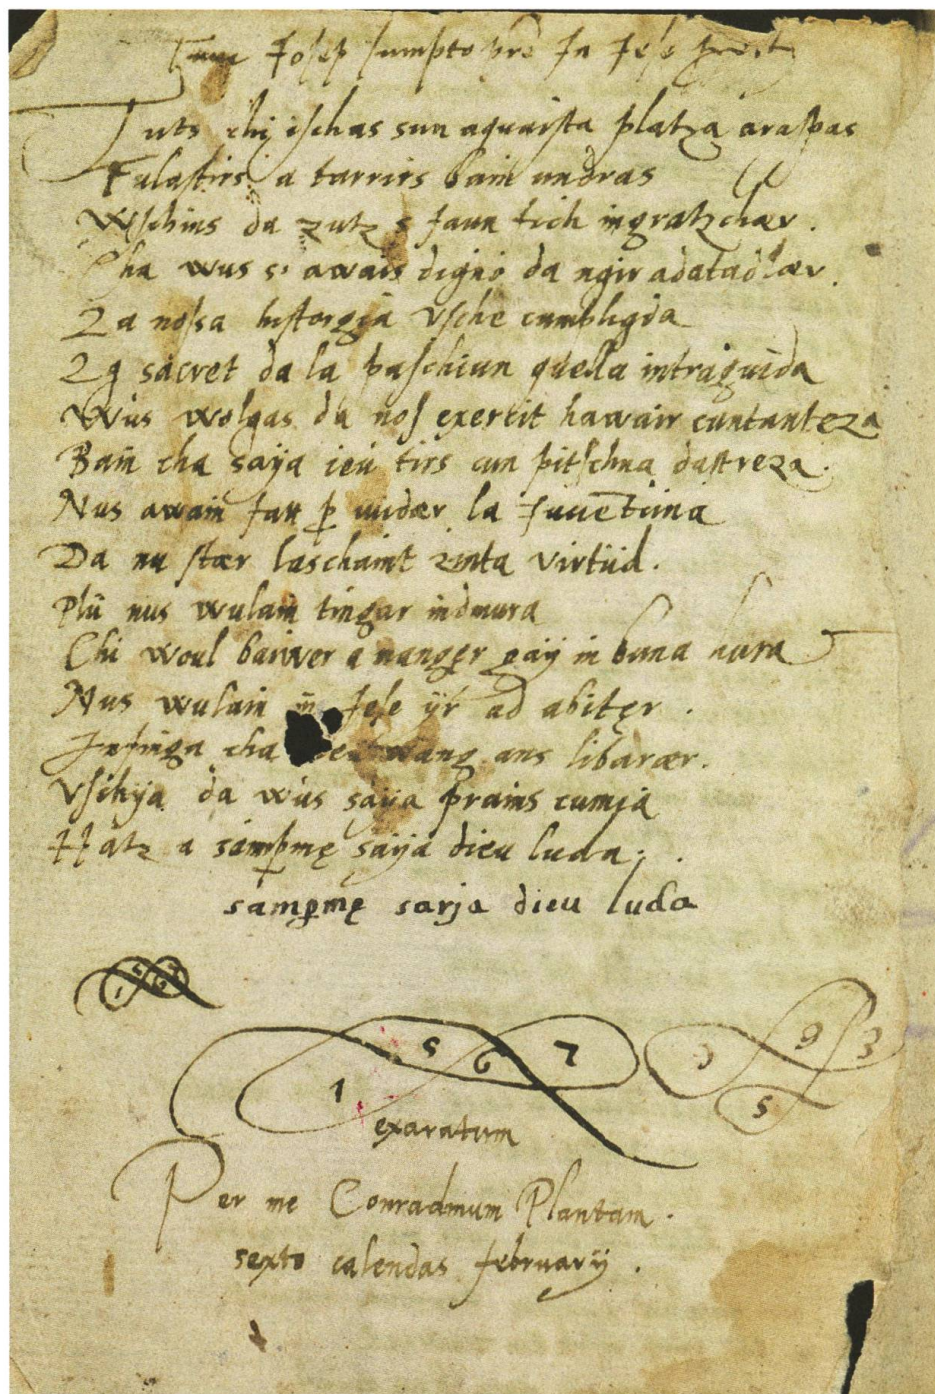 Tunc Josep sumpto prē In Jese
Tuts chj ischas sun aquaista platza araspas
Fulastirs a tarrirs bain undras
Wschins da zutz s faun fich ingratzchær.
Cha wus s' awais digno da ngir ad atadlær.
La nossa histoergia Vsche cumpligda
Lg sacret da la paschiun quella intraguida
Wus wolgas da nos exercit hawair cuntanteza
Bain cha saya ieu tirs cun pitschna dastreza.
Nus awain fatt p̱ uudær la Juuētüna
Da nu stær laschaint zinta virtüd.
Plü nus wulain tingar indmura
Chi woul baiwer a manger gaÿ in buna hura
Nus wulain in Jese ÿr ad abitęr.
Infinga cha wang ans libarær.
Vschÿa da wus saÿa prains cumja
Hatz a sāmp̱mę saÿa dieu luda;.
samp̱mę sarja dieu luda
1567
1567
9 5 9 3
exaratum
Per me Conradinum Plantam.
sexto calendas februarÿ.